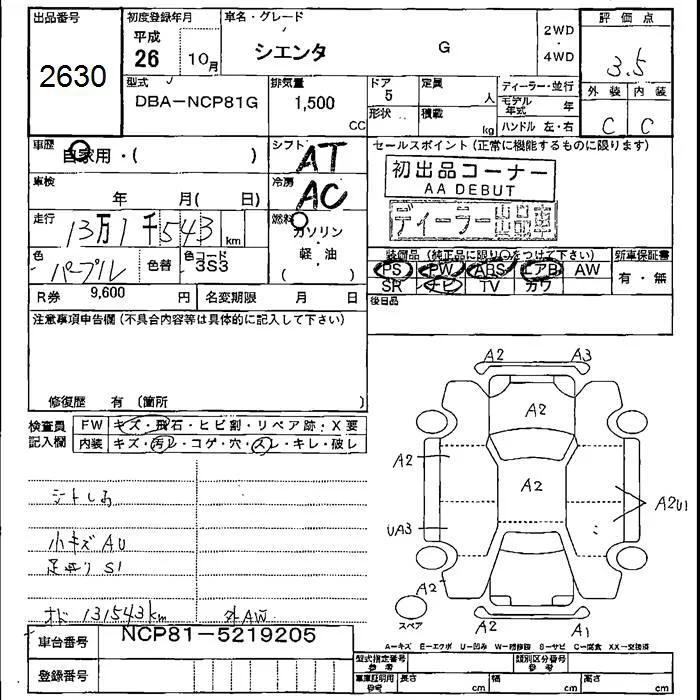 出品番号 初度登録年月 車名・グレード 評価点
2630 平成 26 10月 シエンタ G 2WD ・ 4WD 3.5
型式 排気量 ドア 定員 ディーラー・並行 外装 内装
DBA-NCP81G 1,500 CC 5 人 モデル年式 年 C C
形状 積載 kg ハンドル 左・右
車歴 自家用・( ) シフト AT セールスポイント(正常に機能するものに限ります)
車検 年 月( 日) 冷房 AC 初出品コーナー
AA DEBUT
走行 13万1千543 km 燃料 ガソリン・軽油 ( ) ディーラー出品車
色 パープル 色替 色コード 3S3 装備品(純正品に限り○をつけて下さい) 新車保証書
PS PW ABS エアB AW 有・無
SR ナビ TV カワ
R券 9,600 円 名変期限 月 日 後日品
注意事項申告欄(不具合内容等は具体的に記入して下さい)
修復歴 有 (箇所 )
検査員記入欄 FW キズ・飛石・ヒビ割・リペア跡・X要
内装 キズ・汚レ・コゲ・穴・スレ・キレ・破レ
A2 A3
A2
A2 A2 A2U1
UA3
A2
A2 A1
シートしみ
小キズ AU
足廻り S1
オド 131543km 外AW
スペア
A-キズ E-エクボ U-凹み W-補修跡 S-サビ C-腐食 XX-交換済
車台番号 NCP81-5219205
登録番号
型式指定番号 参考 類別区分番号 参考
車庫証明用 参考 長さ cm 幅 cm 高さ cm